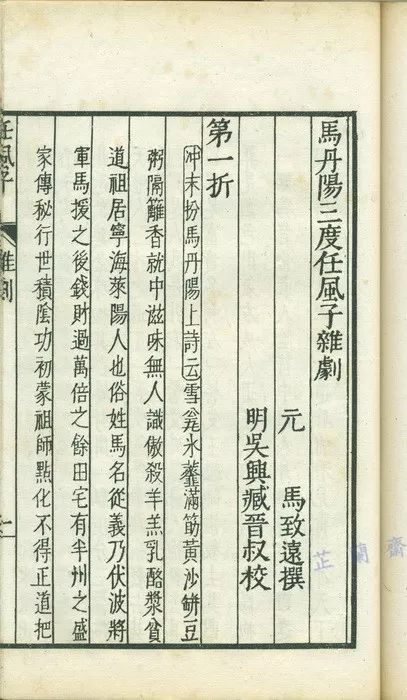 馬丹陽三度任風子雜劇
元 馬致遠撰
明吳興臧晉叔校
第一折
冲末扮馬丹陽上詩云雪甕冰虀滿筯黃沙缾豆
粥隔籬香就中滋味無人識傲殺羊羔乳酪漿貧
道祖居寧海萊陽人也俗姓馬名從義乃伏波將
軍馬援之後錢財過萬倍之餘田宅有半州之盛
家傳秘行世積陰功初蒙祖師點化不得正道把
任風子 雜劇
一
芷蘭齋